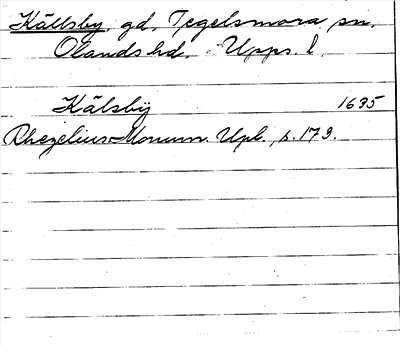 Källsby, gd, Tegelsmora sn.
Olands hd. Upps. l.
Kälsbÿ 1635
Rhezelius Monum. Upl., s. 173.